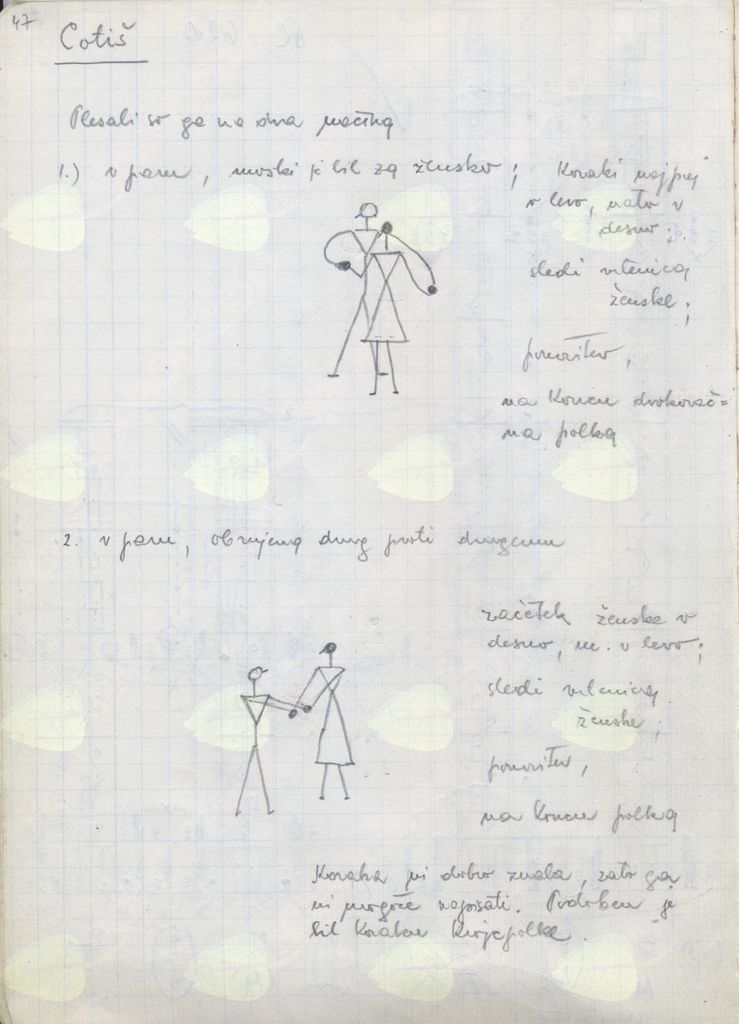 47
Cotiš
Plesali so ga na dva načina
1.) v paru, moški je bil za žensko; Koraki najprej
v levo, nato v
desno;
sledi vrtenica
ženske;
ponovitev,
na koncu dvokorač=
na polka
2. v paru, obrnjena drug proti drugemu
začetek ženske v
desno, m. v levo;
sledi vrtenica
ženske;
ponovitev,
na koncu polka
Koraka ni dobro znala, zato ga
ni mogoče napisati. Podoben je
bil koraku